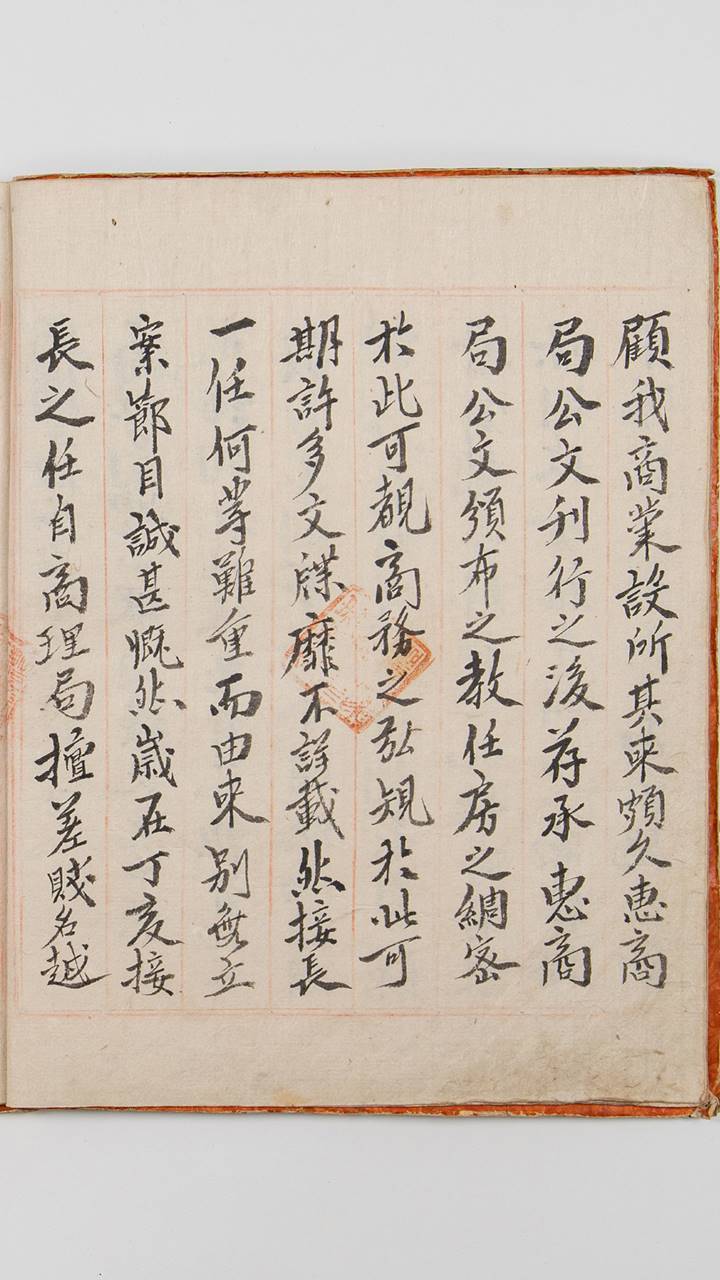 顧我商業設所其來頗久惠商
局公文刊行之後荐承惠商
局公文頒布之教任房之綢密
於此可覩商務之弘規於此可
期許多文牒靡不詳載然接長
一任何等難重而由來別無立
案節目誠甚慨然歲在丁亥接
長之任自商理局擅差賤名越